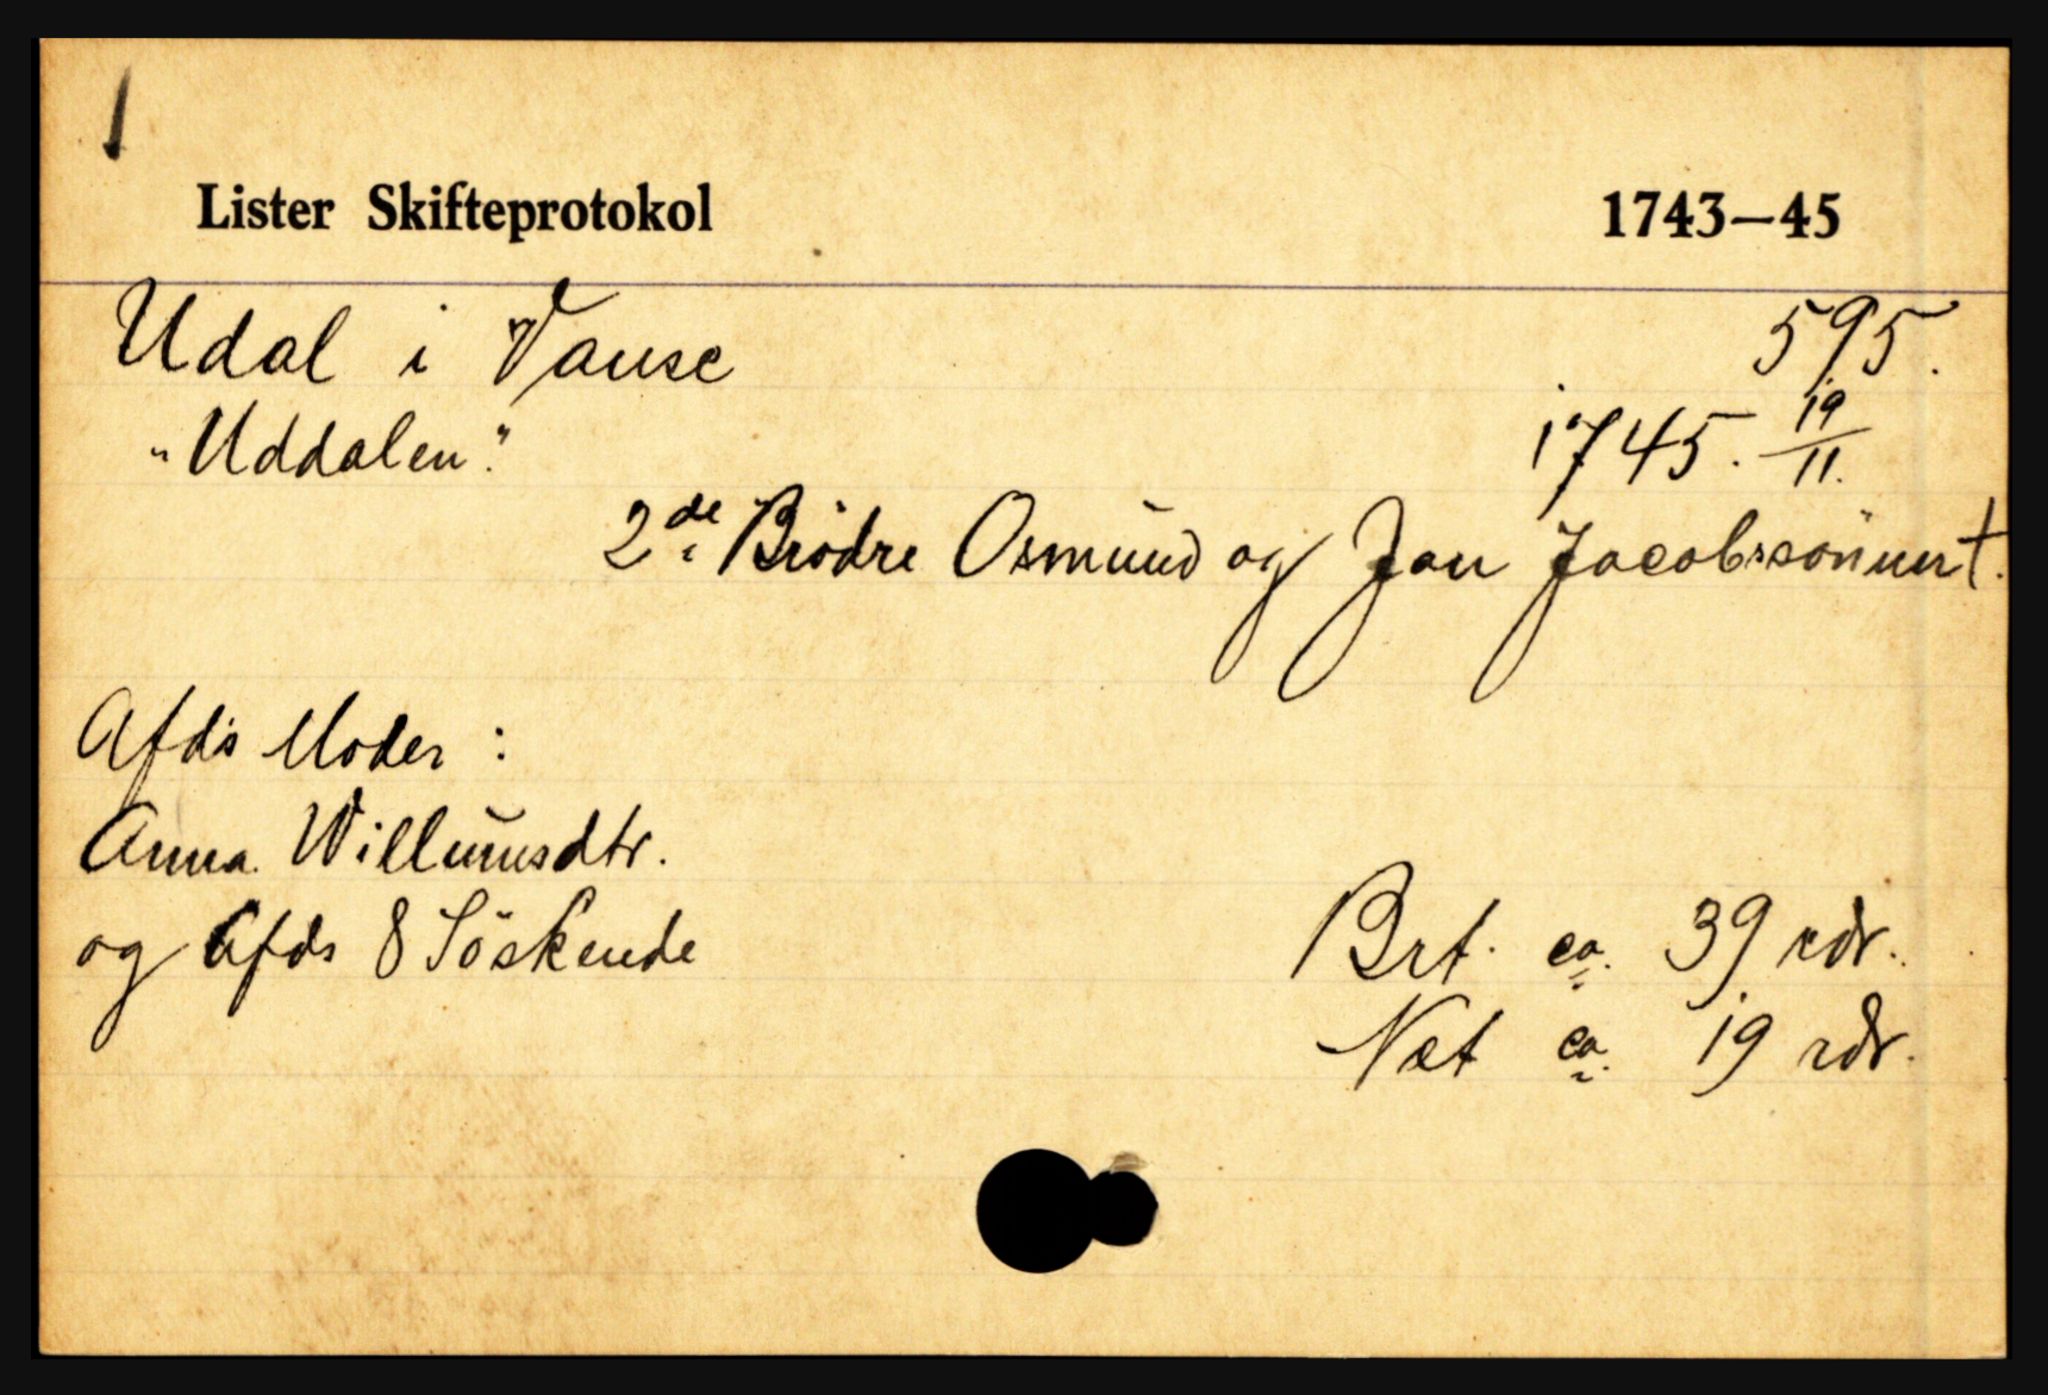 1
Lister Skifteprotokol 1743—45
Udal i Vanse 595.
"Uddalen." 1745. 19/11.
2de Brödre Osmund og Jan Jacobssönner †.
Afds Moder :
Anna Willumsdtr.
og Afds 8 Söskende Brt. ca. 39 rdr.
Net ca. 19 rdr.